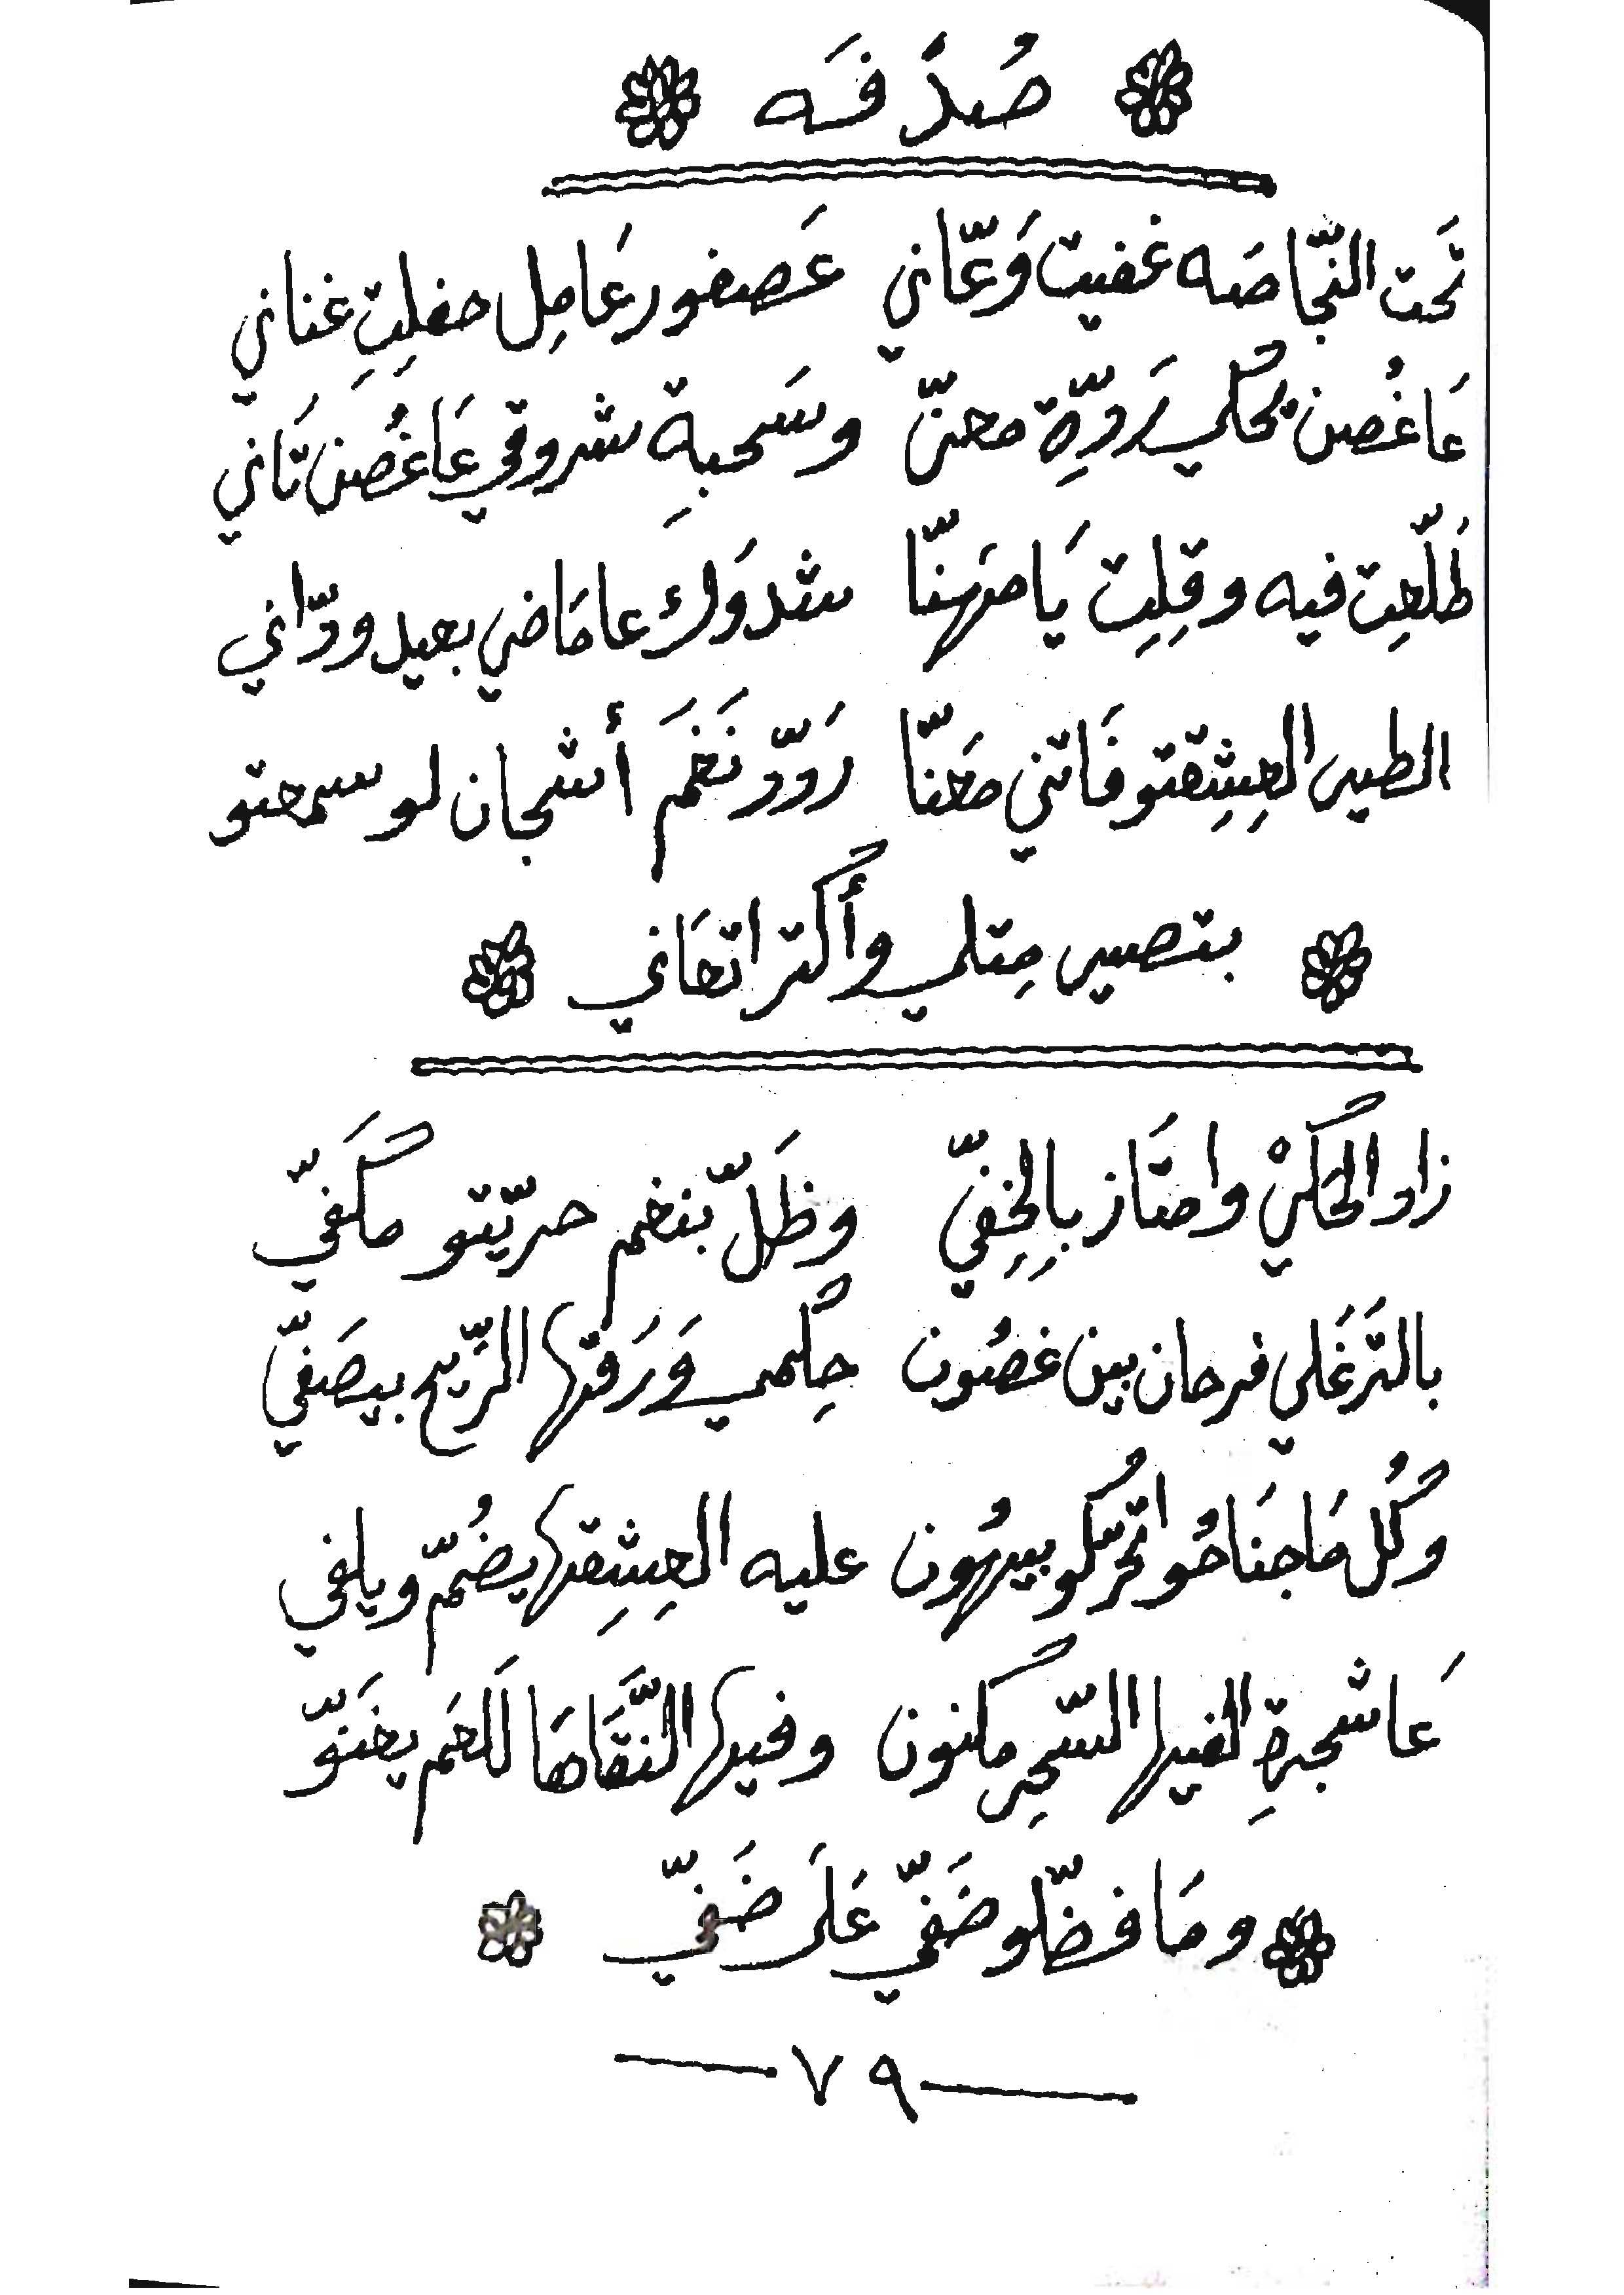 صُدفَه
تَحت النّجاصَه غفيت وَعّاني عَصفور عَامِل حفلِتِ غناني
عَاغُصن تحُكي رَدِّة معنّ وسَحبِة شروقي عَاغُصن تَاني
طَلّعِت فيه وقِلِت يَا مهَنّا شدوَك عا مَاضي بعيد ودّاني
الطير العِشِقتو فَاتني مَعنّا رَدّد نَغَم أشجان لو سمعتو
بتصير مِتلي وأكتر اتعَاني
زاد الحَكيْ وامتَاز بِالخِفيّ وظَلّ بنغم حريّتو مكَفيّ
بالتَرغَلي فرحان بين غصُون حِلمي وَرَقتها الرّيح بيصَفيّ
وكُل مَا جنَاحُو اتحُرّكو بيهُون عليه العِشِقتها يضُمّ ويلفي
عَا شجرةِ الفيها السّحِر مكنون وفيها النّقَاهَا لَلعَم يغَنوّ
ومَا فضّلو ضَفيّ عَلَى ضَفيّ
— ٧٩ —